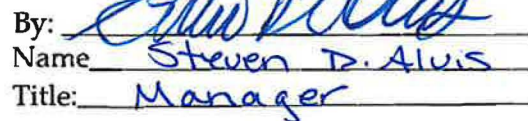 By:
Name Steven D. Alvis
Title: Manager